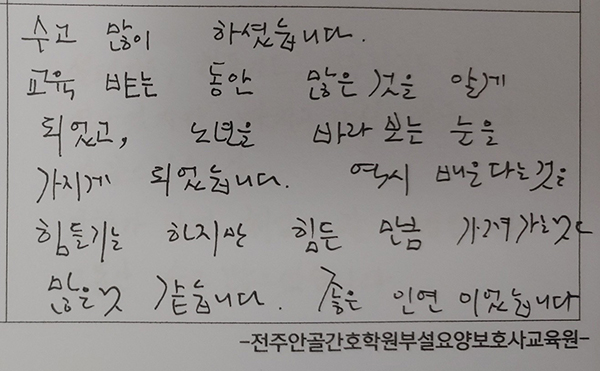 수고 많이 하셨습니다.
교육 받는 동안 많은 것을 알게
되었고, 노년을 바라 보는 눈을
가지게 되었습니다. 역시 배운다는것은
힘들기는 하지만 힘든 만큼 가져가는것도
많은것 같습니다. 좋은 인연 이었습니다
-전주안골간호학원부설요양보호사교육원-